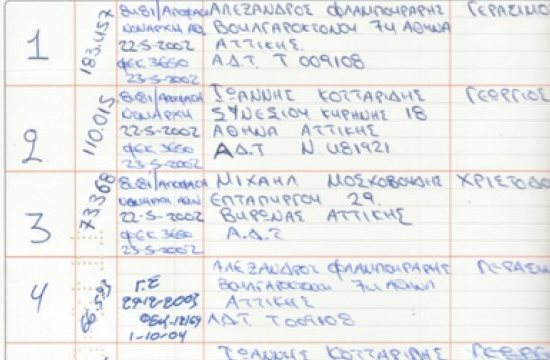 1
183.457
8481/ΑΠΟΦΑΣΗ
ΝΟΜΑΡΧΗ ΑΘΗΝ
22-5-2002
ΦΕΚ 3660
23-5-2002
ΑΛΕΞΑΝΔΡΟΣ ΦΛΑΜΠΟΥΡΑΡΗΣ
ΒΟΥΛΓΑΡΟΚΤΟΝΟΥ 74 ΑΘΗΝΑ
ΑΤΤΙΚΗΣ
Α.Δ.Τ. Τ 009108
ΓΕΡΑΣΙΜΟ
2
110.015
8481/ΑΠΟΦΑΣΗ
ΝΟΜΑΡΧΗ
22-5-2002
ΦΕΚ 3660
23-5-2002
ΙΩΑΝΝΗΣ ΚΟΤΤΑΡΙΔΗΣ
ΣΥΝΕΣΙΟΥ ΚΥΡΗΝΗΣ 18
ΑΘΗΝΑ ΑΤΤΙΚΗΣ
Α.Δ.Τ Ν. 481921
ΓΕΩΡΓΙΟΣ
3
73.368
8481/ΑΠΟΦΑΣΗ
ΝΟΜΑΡΧΗ ΑΘΗΝ
22-5-2002
ΦΕΚ 3660
23-5-2002
ΜΙΧΑΗΛ ΜΟΣΧΟΒΟΥΔΗΣ
ΕΠΤΑΠΥΡΓΟΥ 29.
ΒΥΡΩΝΑΣ ΑΤΤΙΚΗΣ
Α.Δ.Τ
ΧΡΙΣΤΟΔΟ
4
66.593
Γ.Σ
29-12-2003
ΦΕΚ 12169
1-10-04
ΑΛΕΞΑΝΔΡΟΣ ΦΛΑΜΠΟΥΡΑΡΗΣ
ΒΟΥΛΓΑΡΟΚΤΟΝΟΥ 74 ΑΘΗΝΑ
ΑΤΤΙΚΗΣ
ΑΔΤ Τ009108
ΓΕΡΑΣΙΜ
ΙΩΑΝΝΗΣ ΚΟΤΤΑΡΙΔΗΣ